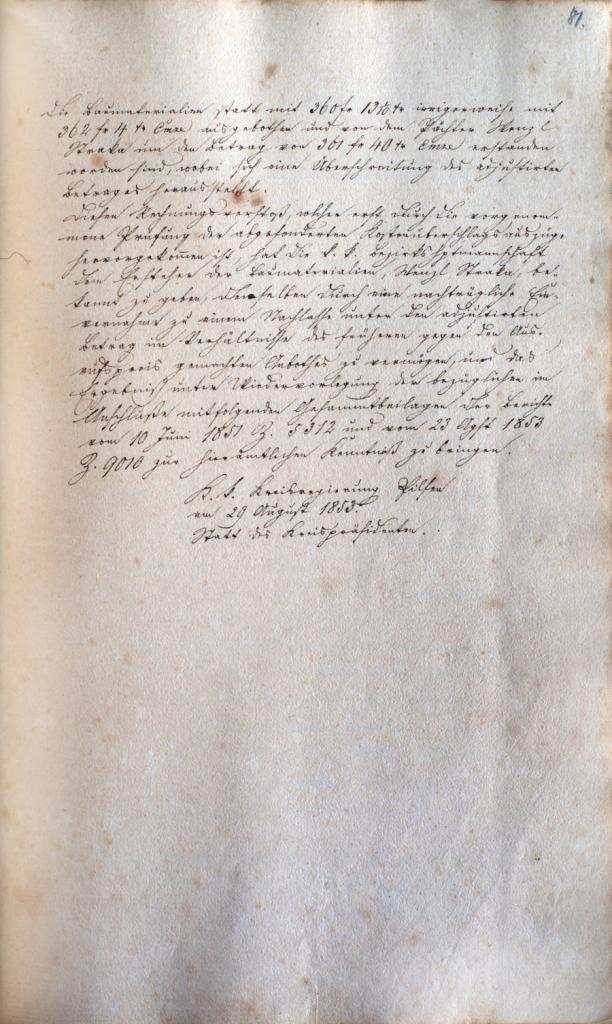 81.
die Baumaterialien statt mit 360 fr 13 xr irrigerweise mit
362 fr 4 xr CMze ausgebothen und von dem Pächter Wenzl
Straka um den Betrag von 301 fr 40 xr CMze erstanden
worden sind, wobei sich eine Überschreitung des adjustirten
Betrages herausstellt.
Diesen Rechnungsverstoß, welcher erst durch die vorgenom-
mene Prüfung der abgesonderten Kostenüberschlagsauszüge
hervorgekommen ist, hat die k. k. Bezirkshptmannschaft
dem Ersteher der Baumaterialien, Wenzl Straka, be-
kannt zu geben, denselben durch eine nachträgliche Ein-
vernahme zu einem Nachlasse unter den adjustirten
Betrag im Verhältnisse des früheren gegen den Aus-
rufspreis gemachten Anbothes zu vermögen, und das
Ergebniß unter Wiedervorlegung der bezüglichen im
Anschluße mitfolgenden Gesammtbeilagen der Berichte
vom 10 Juni 1851 Z. 5312 und vom 23 Agst 1853
Z. 9010 zur hierämtlichen Kenntniß zu bringen.
K. k. Kreisregierung Pilsen
am 29 August 1853.
Statt des Kreispräsidenten.